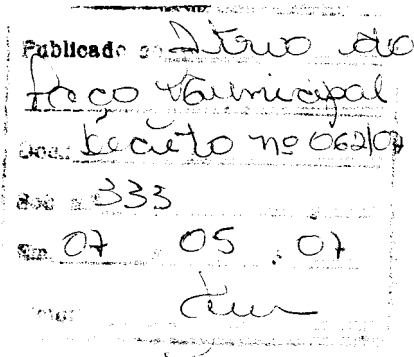 Publicado Átrio do
Paço Municipal
Doc. Decreto nº 062/07
333
Em 07 . 05 . 07